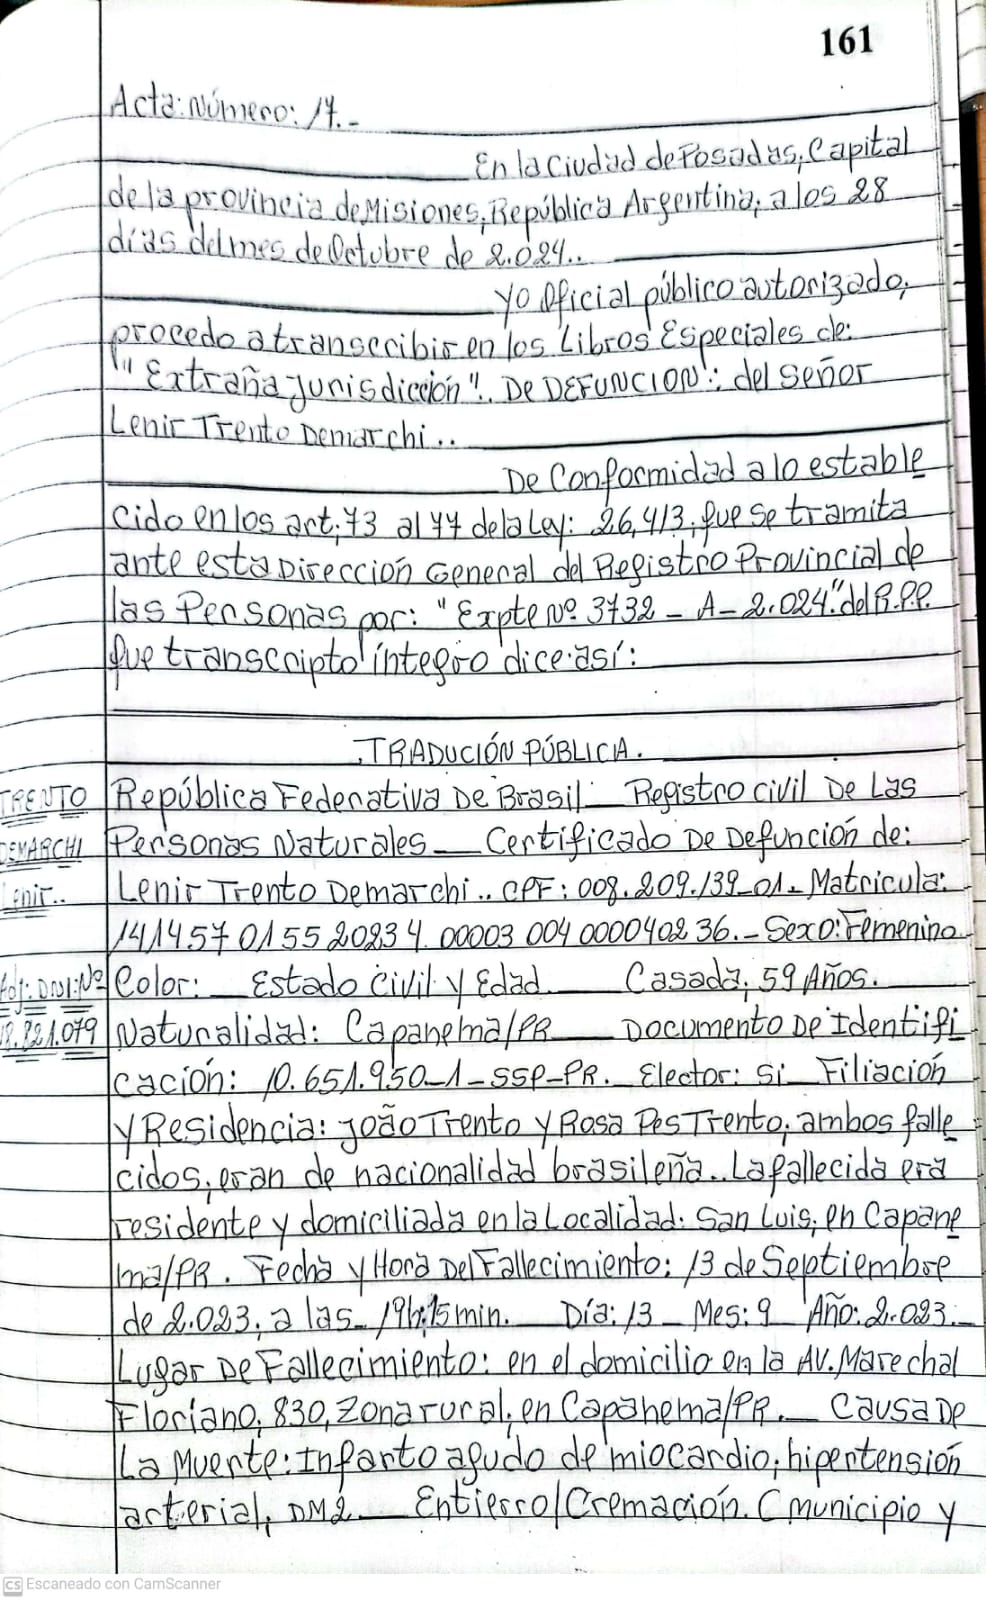 161
Acta: Número: 17.-
En la Ciudad de Posadas, Capital
de la provincia de Misiones, República Argentina, a los 28
días del mes de Octubre de 2.024..
yo Oficial público autorizado,
procedo a transcribir en los Libros Especiales de:
"Extraña Jurisdicción". De DEFUNCION: del Señor
Lenir Trento Demarchi..
De Conformidad a lo estable
cido en los art; 73 al 77 de la Ley: 26,413, que se tramita
ante esta Dirección General del Registro Provincial de
las Personas por: "Expte Nº 3732 - A - 2.024." del R.P.P.
que transcripto íntegro dice así:
TRADUCIÓN PÚBLICA.
TRENTO
DEMARCHI
Lenir..
República Federativa De Brasil Registro civil De Las
Personas Naturales Certificado De Defunción de:
Lenir Trento Demarchi.. CPF: 008.209.139-01. Matricula:
141457 01 55 2023 4 00003 004 0000402 36.- Sexo: Femenino
Adj: DNI: Nº
.821.079
Color: Estado Civil y Edad Casada, 59 Años.
Naturalidad: Capanema/PR Documento De Identifi
cación: 10.651.950-1-SSP-PR. Elector: Si Filiación
y Residencia: João Trento y Rosa Pes Trento, ambos falle
cidos, eran de nacionalidad brasileña.. La fallecida era
residente y domiciliada en la Localidad: San Luis, en Capane
ma/PR. Fecha y Hora Del Fallecimiento: 13 de Septiembre
de 2.023, a las 19h:15min. Día: 13 Mes: 9 Año: 2.023.
Lugar De Fallecimiento: en el domicilio en la AV. Marechal
Floriano, 830, Zona rural, en Capanema/PR. Causa De
La Muente: Infarto agudo de miocardio, hipertensión
arterial, DM2 Entierro/Cremación. C municipio y
CS Escaneado con CamScanner